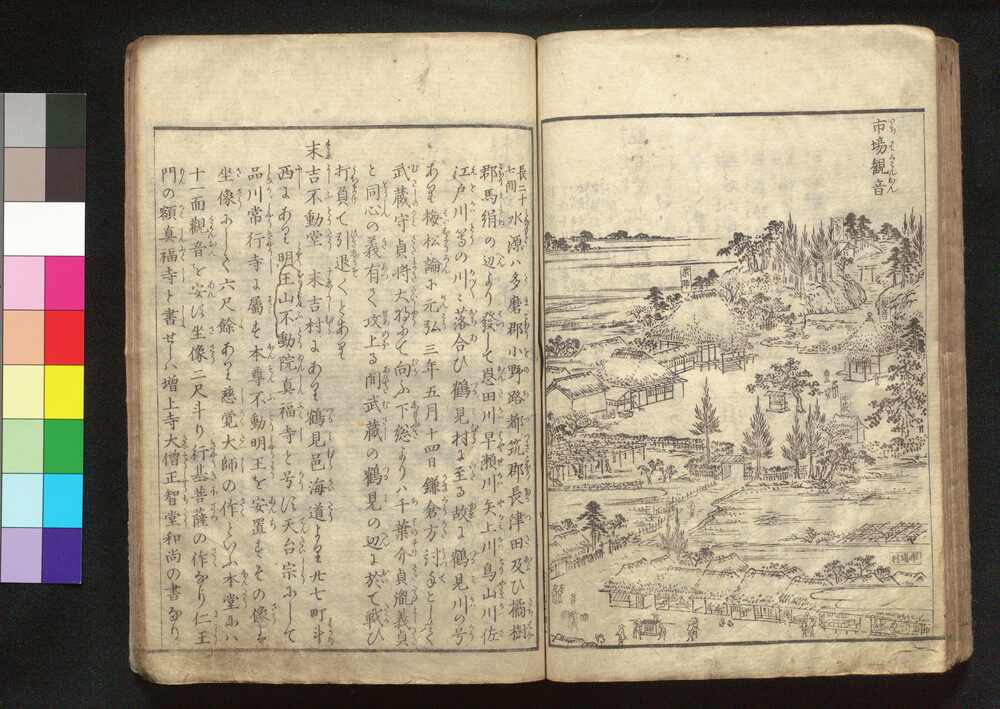 市場観音
長二十
七間
水源ハ多磨郡小野路都筑郡長津田及ひ橘樹
郡馬絹の辺より發して恩田川早瀬川矢上川鳥山川佐
江戸川等の川々落合ひ鶴見村に至る故に鶴見川の号
あり梅松論に元弘三年五月十四日鎌倉方討手として
武蔵守貞将大将にて向ふ下総よりハ千葉介貞胤義貞
と同心の義有て攻上る間武蔵の鶴見の辺に於て戦ひ
打負て引退くとあり
末吉不動堂 末吉村にあり鶴見邑海道より北七町斗
西にあり明王山不動院真福寺と号す天台宗にして
品川常行寺に屬す本尊不動明王を安置すその像ハ
坐像にして六尺餘あり慈覚大師の作といふ本堂にハ
十一面觀音を安す坐像二尺斗り行基菩薩の作なり仁王
門の額真福寺と書せしハ増上寺大僧正智堂和尚の書なり